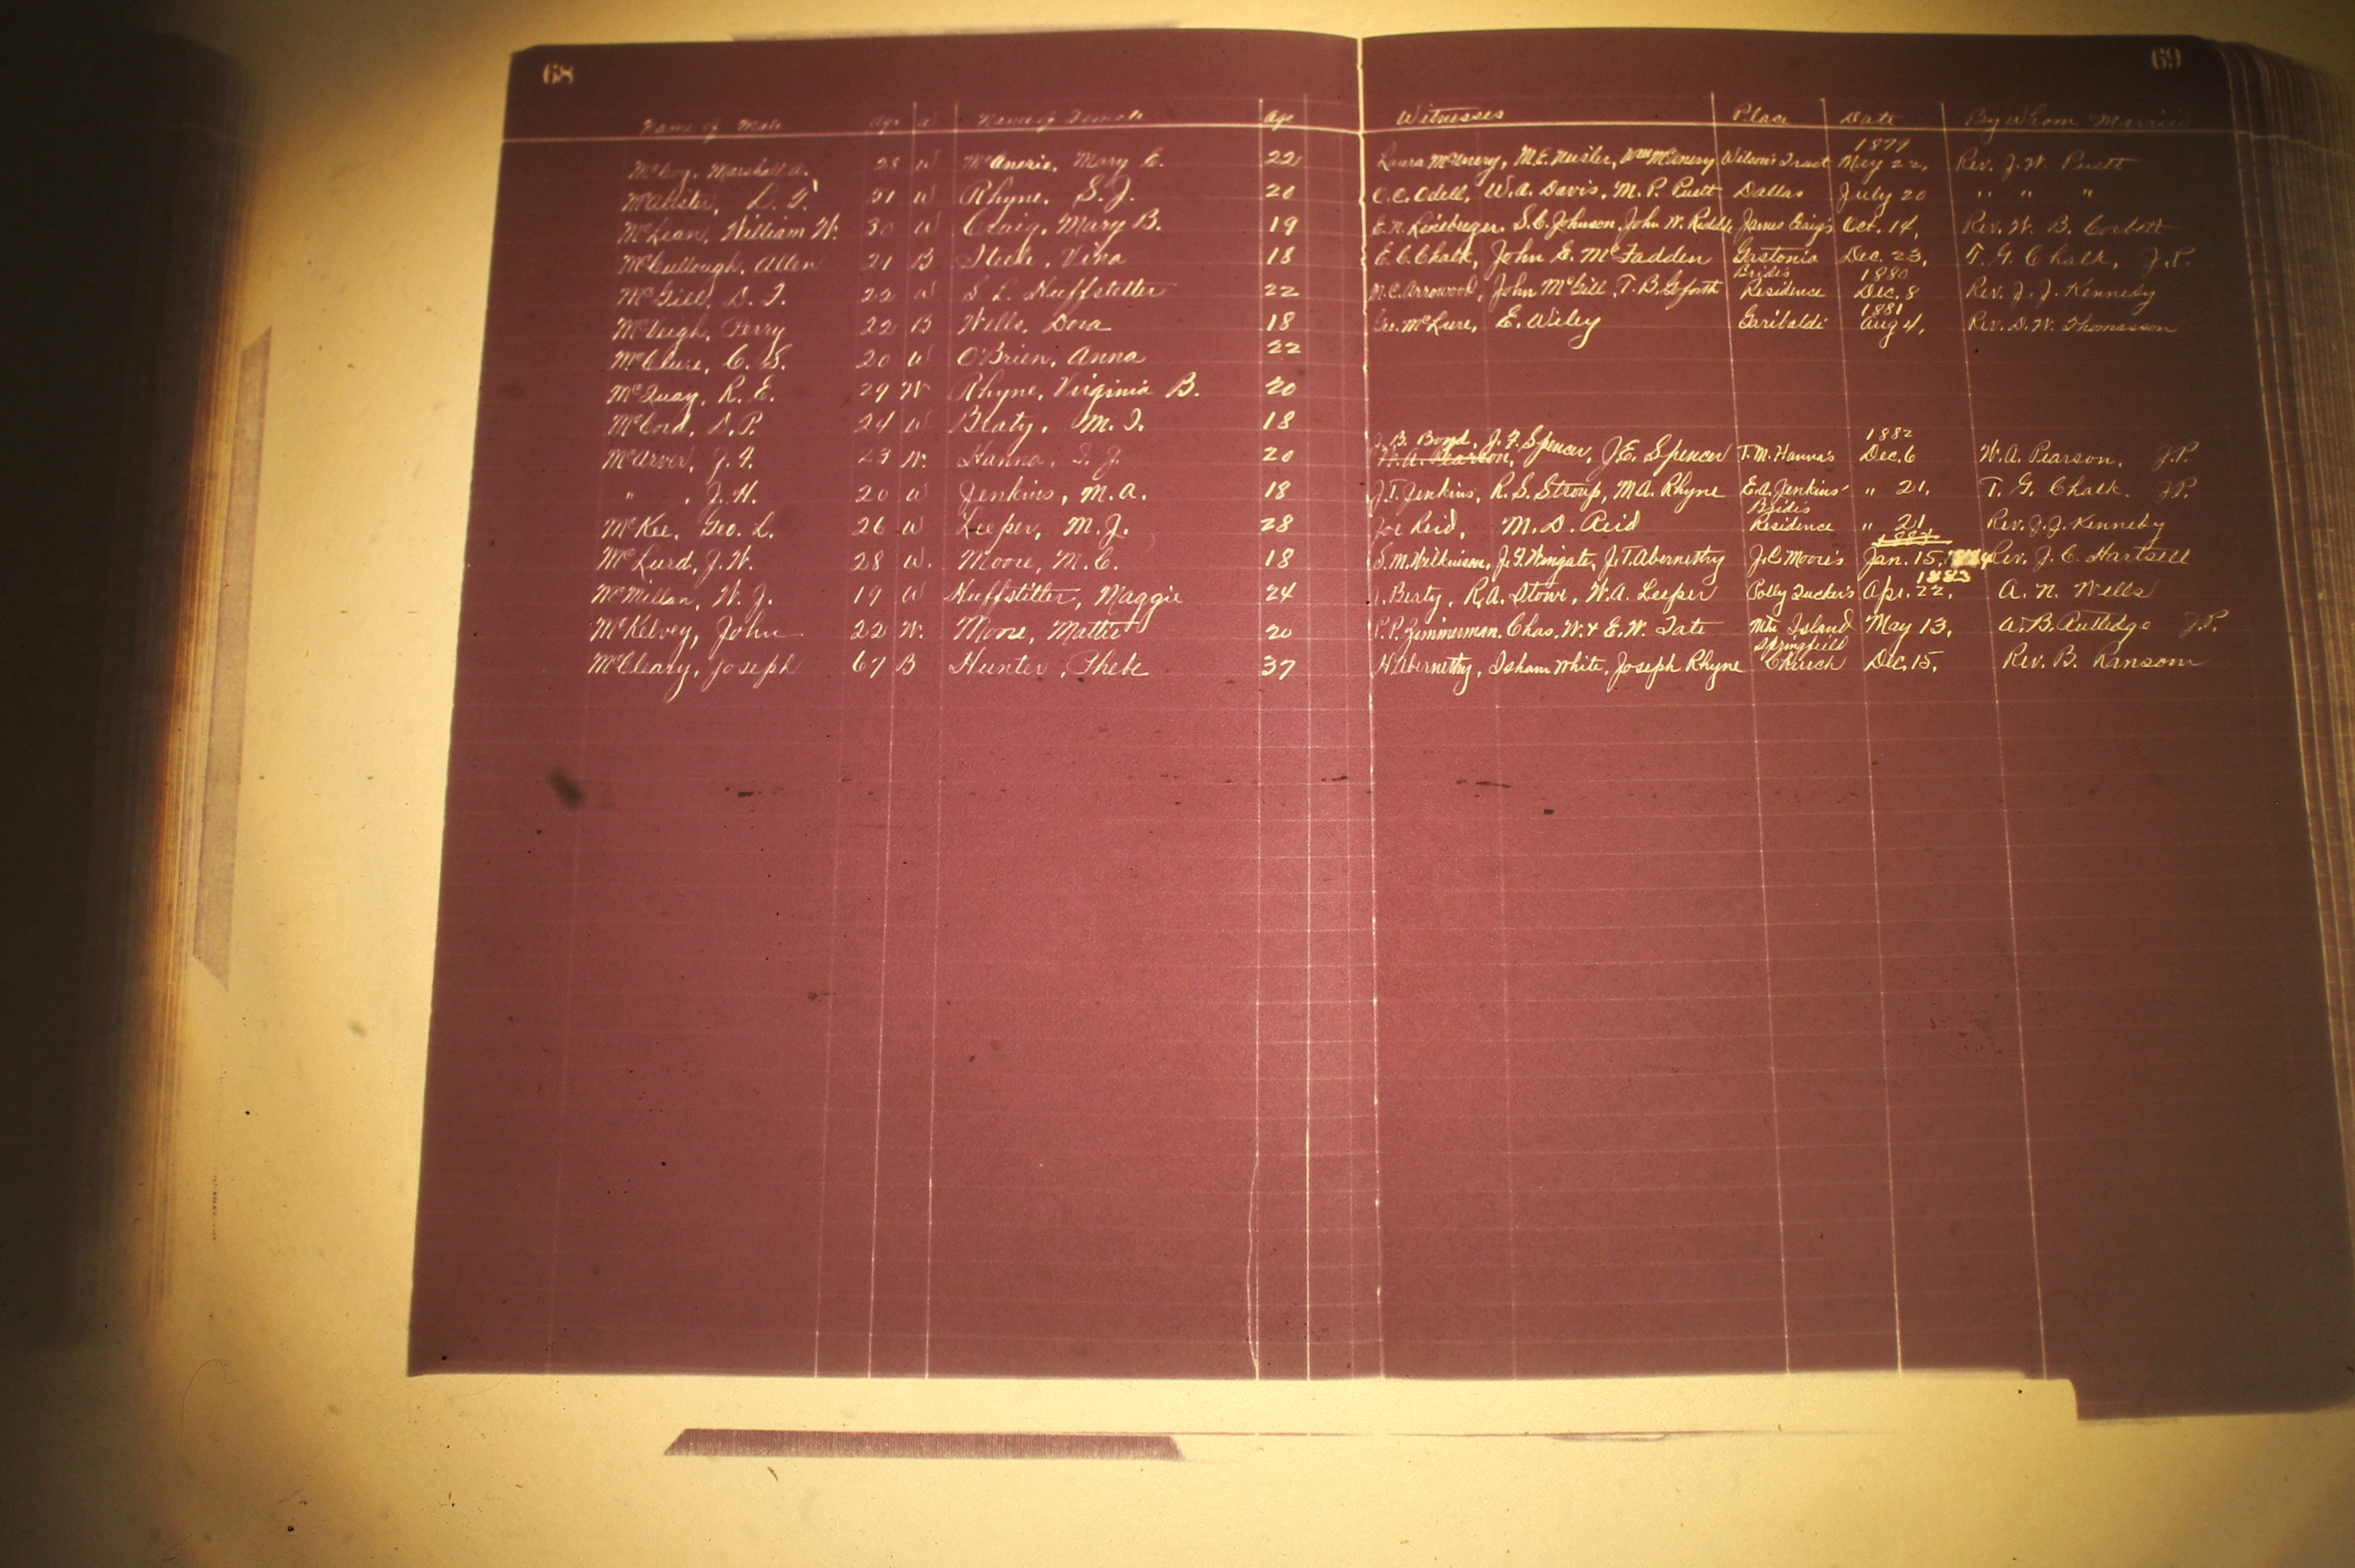 68
69
Name of Male Age W Name of Female Age Witnesses Place Date By Whom Married
1879
McCoy, Marshall A. 28 W McAnerie, Mary E. 22 Laura McEnery, M.E. Wm McEnery Wilson's Tract May 22, Rev. J. W. Puett
L. F. 51 W Rhyne, S. J. 20 C. C. Odell, W. A. Davis, M. P. Puett Dallas July 20 " " "
McLean, William W. 30 W Craig, Mary B. 19 E. N. Lineberger, S. C. Johnson, John W. James Craig's Oct. 14, Rev. W. B. Corbett
McCullough, Allen 21 B Vina 18 E. C. Chalk, John E. McFadden Gastonia Dec. 23, T. G. Chalk, J.P.
Brides 1880
McGill, D. T. 22 W S. L. Huffstetter 22 M. C. Arrowood, John McGill, T. B. Goforth Residence Dec. 8 Rev. J. J. Kennedy
1881
McVeigh, Perry 22 B Wells, Dora 18 McLure, E. Wiley Garibaldi Aug 4, Rev. D. W. Thomasson
McClure, C. S. 20 W O'Brien, Anna 22
McQuay, R. E. 29 W Rhyne, Virginia B. 20
McCord, D. P. 24 W Beaty, M. I. 18
J. B. Bond, J. F. Spencer, J. E. Spencer 1882
McArver, J. F. 23 W. Hanna, I. J. 20 W. A. Pearson, T. M. Hanna's Dec. 6 W. A. Pearson, J.P.
" , J. H. 20 W Jenkins, M. A. 18 J. T. Jenkins, R. S. Stroup, M A. Rhyne E. A. Jenkins' " 21, T. G. Chalk, J.P.
Brides
McKee, Geo. L. 26 W Leeper, M. J. 28 Joe Reid, M. D. Reid Residence " 21, Rev. J. J. Kennedy
McLurd, J. W. 28 W. Moore, M. C. 18 S. M. Wilkinson, J. F. Wingate, J. T. Abernethy J. C Moore's Jan. 15, Rev. J. C. Hartsell
1883
McMillan, W. J. 19 W Huffstitter, Maggie 24 Beaty, R. A. Stowe, W. A. Leeper Polly Tucker's Apr. 22, A. N. Wells
McKelvey, John 22 W. Moore, Mattie 20 P. P. Zimmerman, Chas. W. & E. W. Tate Mtn Island May 13, A. B. Rutledge J.P.
Springfield
McCleary, Joseph 67 B Hunter, Phebe 37 H Abernethy, Isham White, Joseph Rhyne Church Dec. 15, Rev. B. Ransom